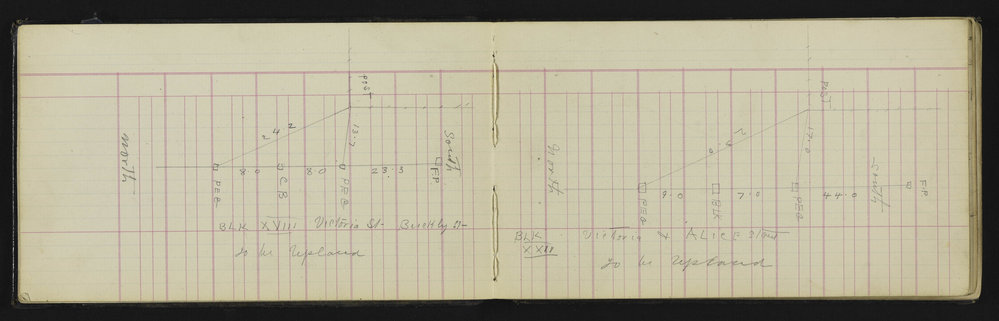 POST
24.2
13.7
North
South
PEG
8.0
C.B
8.0
PEG
23.3
F.P
BLK XVIII Victoria St. Buckley St
To be Replaced
POST
17.0
North
South
PEG
9.0
BLK
7.0
PEG
44.0
F.P
BLK XXII Victoria & ALICE Street
To be Replaced